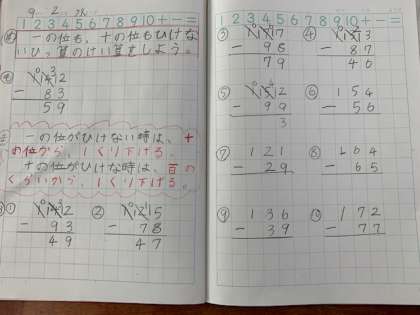 9. 2. 水
1 2 3 4 5 6 7 8 9 10 + − =
め 一の位も、十の位もひけな
いひっ算のけい算をしよう。
142
− 83
59
一の位がひけない時は、十
の位から、1くり下げる。
十の位がひけな時は、百の
くらいから、1くり下げる。
① 142
− 93
49
② 125
− 78
47
1 2 3 4 5 6 7 8 9 10 + − =
③
− 98
79
④
− 87
46
⑤ 152
− 99
3
⑥ 154
− 56
⑦ 121
− 29
⑧ 164
− 65
⑨ 136
− 39
⑩ 172
− 77